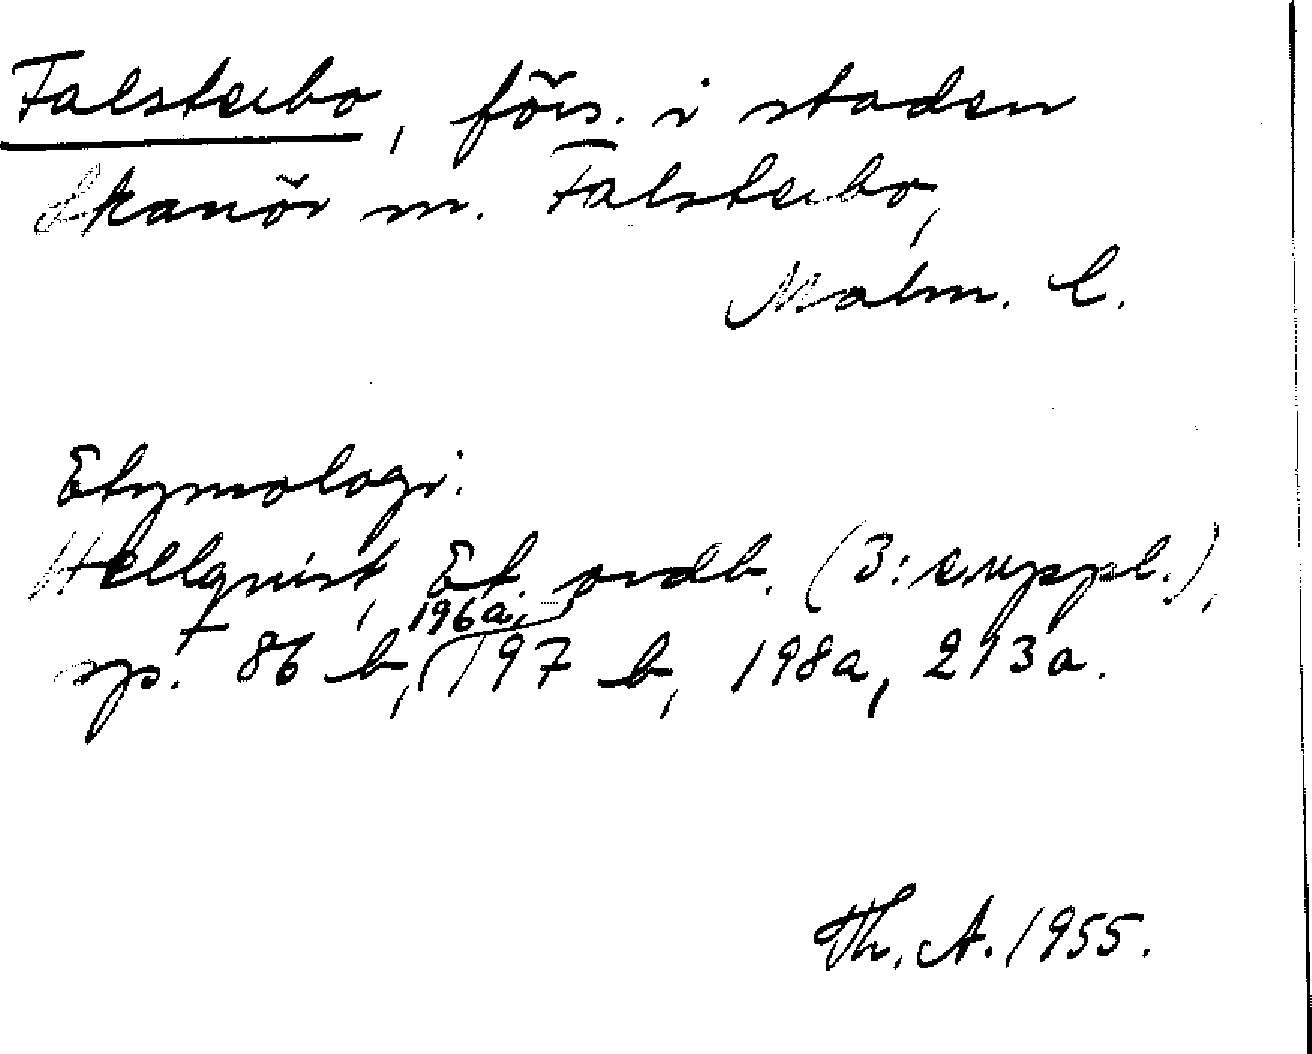 Falsterbo, förs. i staden
Skanör m. Falsterbo,
Malm. l.
Etymologi.
Hellquist, Et. ordb. (3: e uppl.),
sp. 86 b, 196a, 197 b, 198a, 293a.
Th. A. 1955.